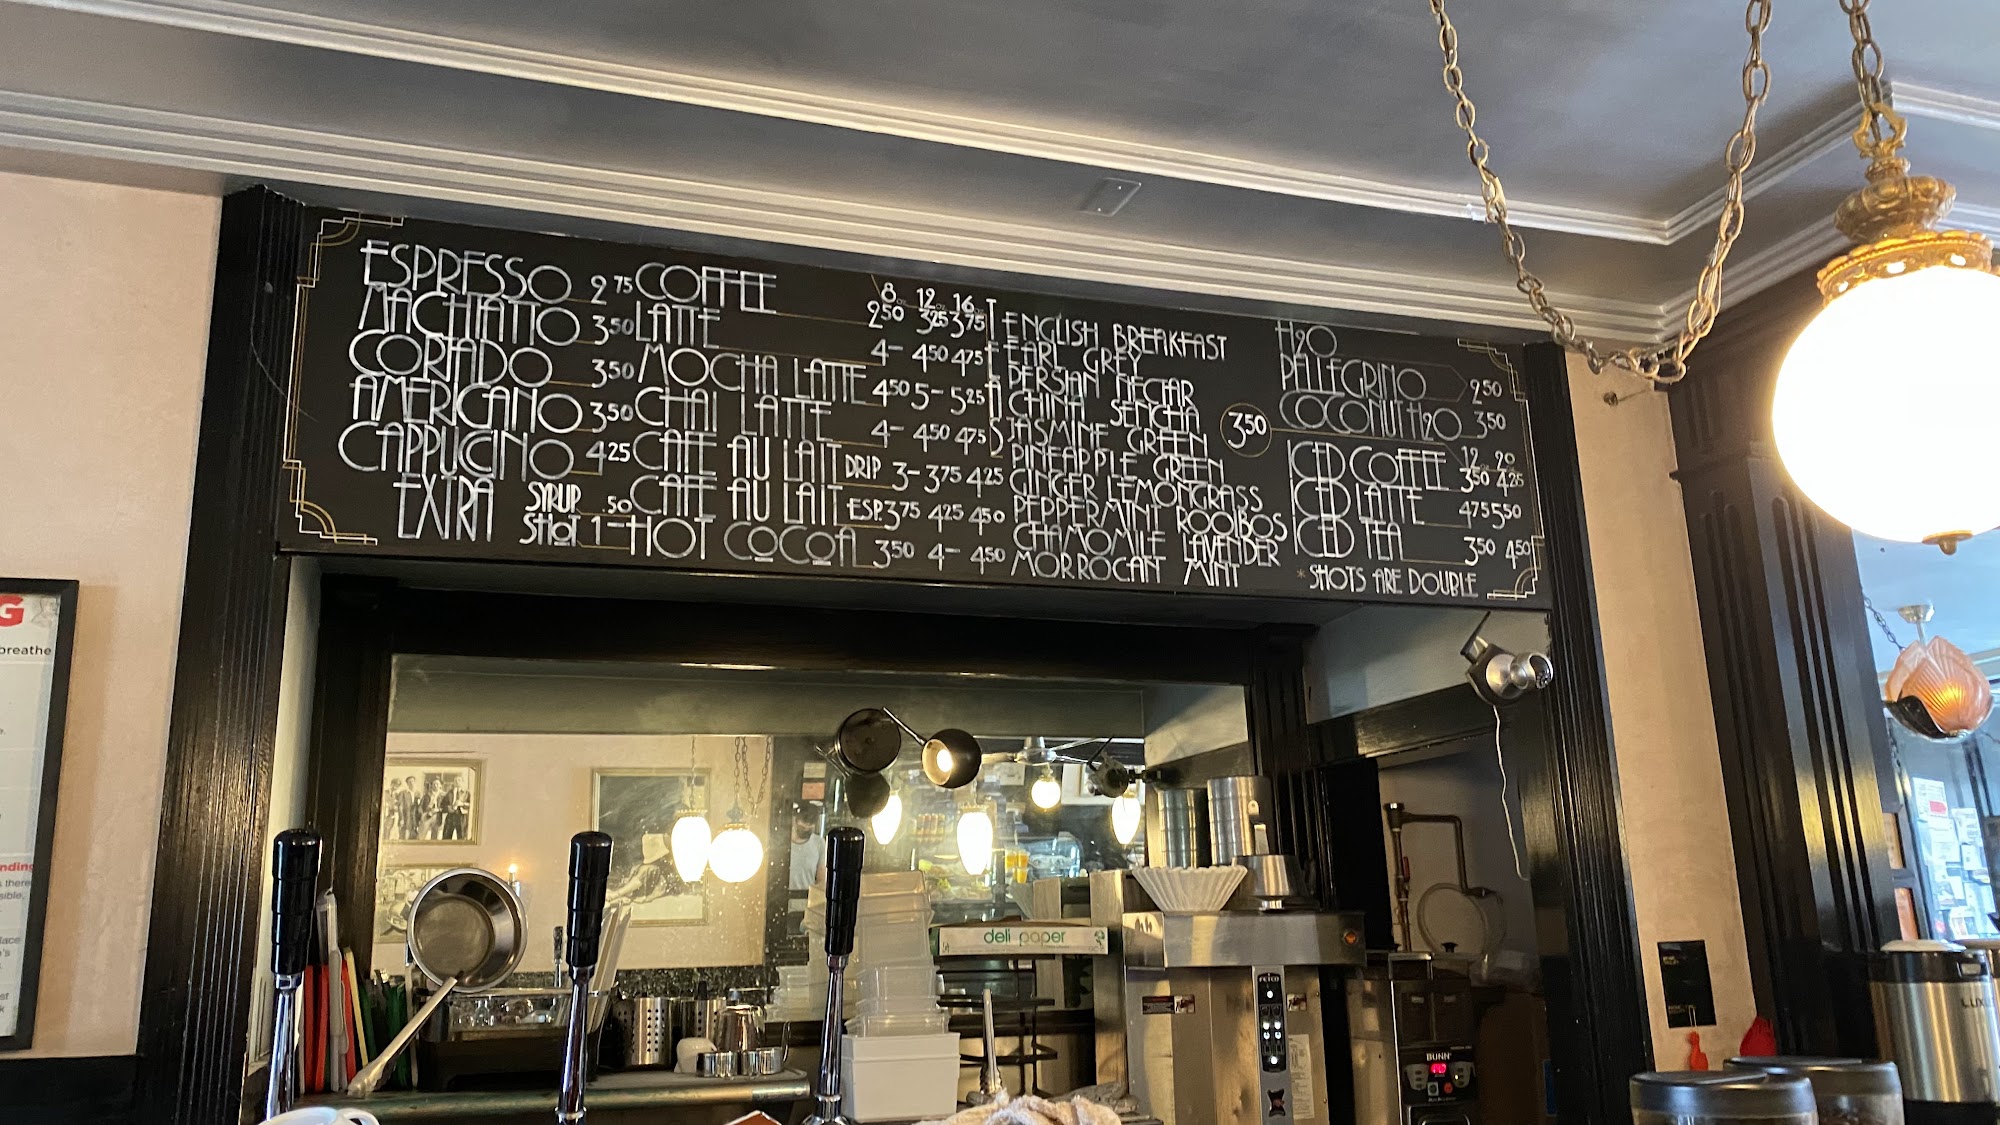 ESPRESSO 2 75
MACHIATTO 3 50
CORTADO 3 50
AMERICANO 3 50
CAPPUCINO 4 25
EXTRA SYRUP .50
SHOT 1-
8 oz 12 oz 16 oz
COFFEE 2 50 3 25 3 75
LATTE 4- 4 50 4 75
MOCHA LATTE 4 50 5- 5 25
CHAI LATTE 4- 4 50 4 75
CAFE AU LAIT DRIP 3- 3 75 4 25
CAFE AU LAIT ESP. 3 75 4 25 4 50
HOT COCOA 3 50 4- 4 50
TEAS
ENGLISH BREAKFAST
EARL GREY
PERSIAN NECTAR
CHINA SENCHA
JASMINE GREEN
PINEAPPLE GREEN
GINGER LEMONGRASS
PEPPERMINT ROOIBOS
CHAMOMILE LAVENDER
MORROCAN MINT
3 50
H2O
PELLEGRINO 2 50
COCONUT H2O 3 50
12 oz 20 oz
ICED COFFEE 3 50 4 25
ICED LATTE 4 75 5 50
ICED TEA 3 50 4 50
*SHOTS ARE DOUBLE
G
breathe
deli paper
FETCO
BUNN